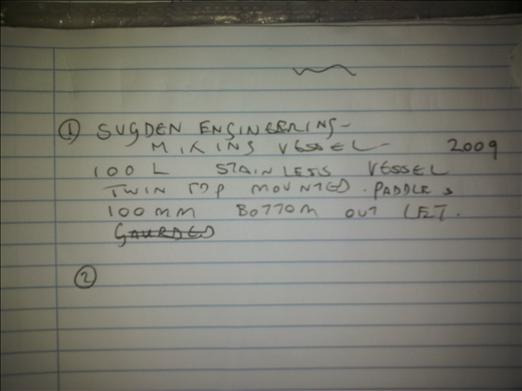 ① SUGDEN ENGINEERING-
MIXING VESSEL 2009
100 L STAINLESS VESSEL
TWIN TOP MOUNTED. PADDLES
100MM BOTTOM OUT LET.
GAURDED
②